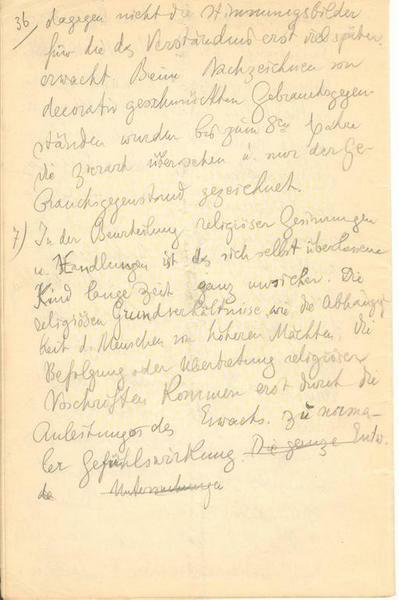 36/ dagegen nicht die Stimmungsbilder
für die das Verständnis erst viel später
erwacht. Beim Nachzeichnen von
decorativ geschmückten Gebrauchsgegen-
ständen wurden bis zum 8en Jahre
die Zierart übersehen u. nur der Ge-
brauchsgegenstand gezeichnet.
7) In der Beurteilung religiöser Gesinnungen
u. Handlungen ist das sich selbst überlassene
Kind lange Zeit ganz unsicher. Die
religiösen Grundverhältnisse wie die Abhängig
keit d. Menschen von höheren Mächten, die
Befolgung oder Übertretung religiöser
Vorschriften kommen erst durch die
Anleitung des Erwachs. zu norma-
ler Gefühlswirkung. Die ganze Entw.
de Untersuchunge